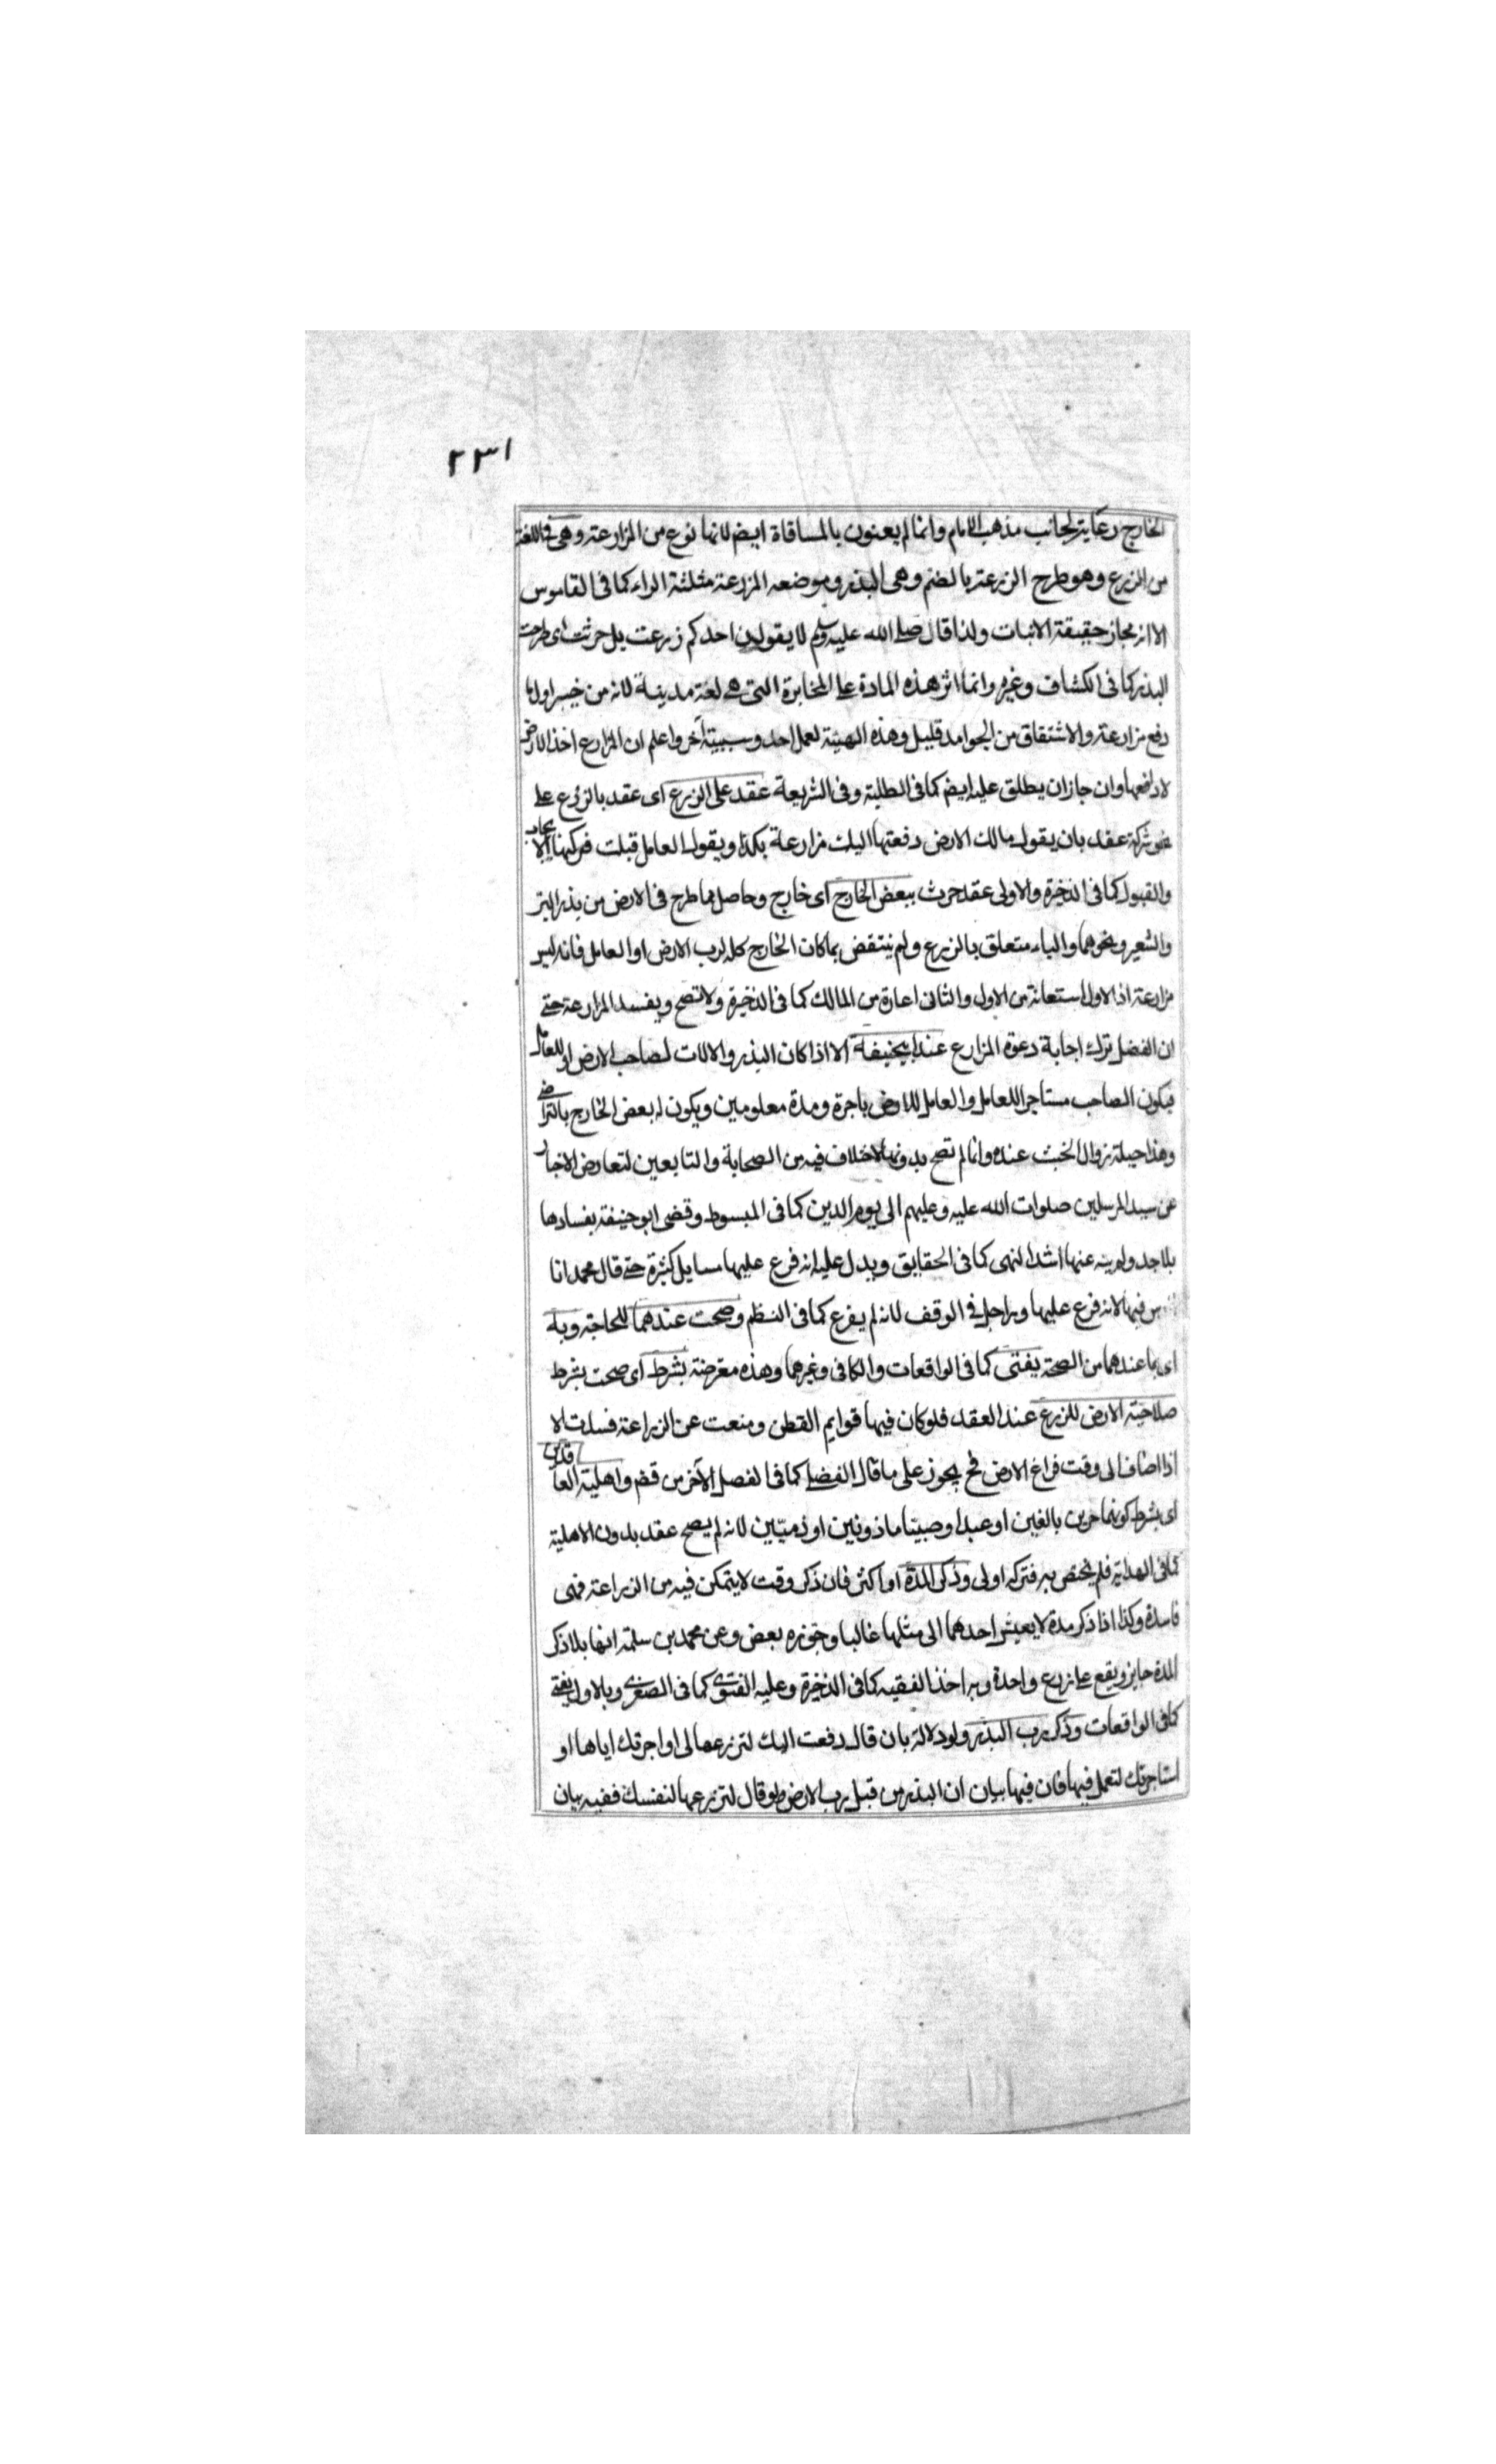 ٢٣١
الخارج رعاية لجانب مذهب الامام وانما لم يعنون بالمساقاة ايضم لانها نوع من المزارعة وهى فى اللغة
من الزرع وهو طرح الزرعة بالضم وهى البذر وموضعه المزرعة مثلثة الراء كما فى القاموس
الا انه مجاز حقيقة الانبات ولذا قال صلى الله عليه وسلم لا يقولن احدكم زرعت بل حرثت اى طرحت
البذر كما فى الكشاف وغيره وانما اثر هذه المادة على المخابرة التى هى لغة مدينة لانه من خيبر اول ما
دفع مزارعة والاشتقاق من الجوامد قليل وهذه الهيئة لعمل احد وسببية آخر واعلم ان المزارع اخذ الارض
لا دافعها وان جاز ان يطلق عليه ايضم كما فى الطلبة وفى الشريعة عقد على الزرع اى عقد بالزرع على
شركة عقد بان يقول مالك الارض دفعتها اليك مزارعة بكذا ويقول العامل قبلت فركنها الايجاب
والقبول كما فى الذخيرة والاولى عقد حرث ببعض الخارج اى خارج وحاصل مما طرح فى الارض من بذر البر
والشعير ونحوهما والباء متعلق بالزرع ولم ينتقض بما كان الخارج كله لرب الارض او العامل فانه ليس
مزارعة اذ الاول استعانة من الاول والثانى اعارة من المالك كما فى الذخيرة ولا تصح ويفسد المزارعة حتى
ان الفضل ترك اجابة دعوة المزارع عند ابيحنيفة الا اذا كان البذر والالات لصاحب الارض او للعامل
فيكون الصاحب مستاجرا للعامل والعامل للارض باجرة ومدة معلومين ويكون له بعض الخارج بالتراضى
وهذا حيلة زوال الخبث عنده وانما لم تصح بدونها لاختلاف فيه من الصحابة والتابعين لتعارض الاخبار
عن سيد المرسلين صلوات الله عليه وعليهم الى يوم الدين كما فى المبسوط وقضى ابو حنيفة بفسادها
بلا حد ولم ينه عنها اشد النهى كما فى الحقايق ويدل عليه انه فرع عليها مسايل كثيرة حتى قال محمد انا
فيها لانه فرع عليها وراجل فى الوقف لانه لم يفرع كما فى النظم وصحت عندهما للحاجة وبه
اى بما عندهما من الصحة يفتى كما فى الواقعات والكافى وغيرهما وهذه معترضة بشرط اى صحت بشرط
صلاحية الارض للزرع عند العقد فلو كان فيها قوايم القطن ومنعت عن الزراعة فسدت الا
اذا اضاف الى وقت فراغ الارض فح يجوز على ما قال الفضلى كما فى الفصل الآخر من قضم واهلية العاقدين
اى بشرط كونهما حرين بالغين او عبدا وصبيا ماذونين او ذميين لانه لم يصح عقد بدون الاهلية
كما فى الهداية فلم يختص به فتركه اولى وذكر المدة او اكثر فان ذكر وقت لا يتمكن فيه من الزراعة فهى
فاسدة وكذا اذا ذكر مدة لا يعيش احدهما الى مثلها غالبا وجوزه بعض وعن محمد بن سلمة انها بلا ذكر
المدة جايز ويقع على زرع واحدة وبه اخذ الفقيه كما فى الذخيرة وعليه الفتوى كما فى الصغرى وبالاول يفتى
كما فى الواقعات وذكر رب البذر ولو دلالة بان قال دفعت اليك لتزرعها لى او اجرتك اياها او
استاجرتك لتعمل فيها فان فيها بيان ان البذر من قبل رب الارض ولو قال لتزرعها لنفسك ففيه بيان